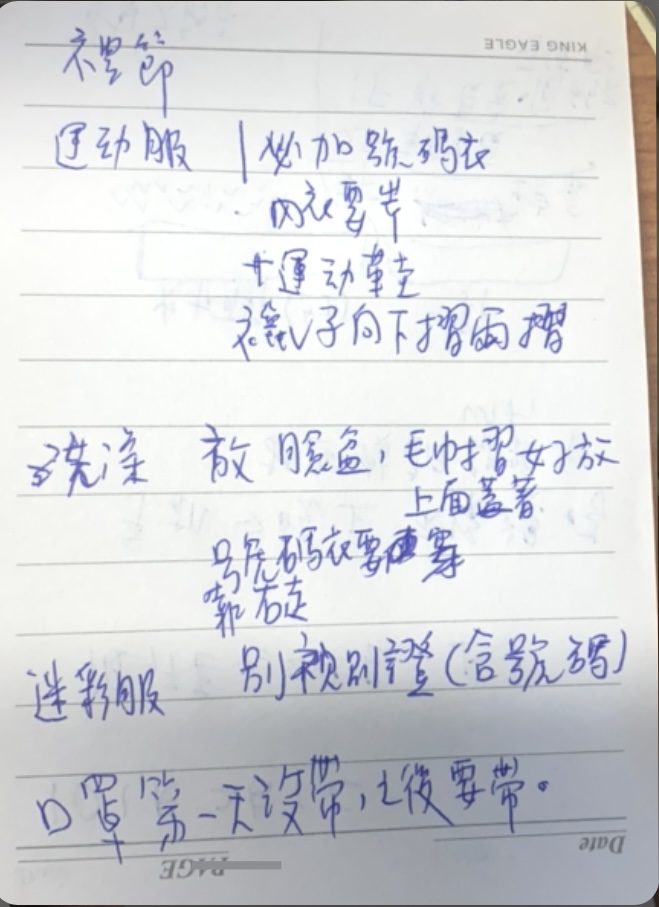 KING EAGLE
禮節
運动服 | 必加號碼衣
內衣要岸
+運动鞋
襪子向下摺兩摺
洗澡 放臉盆,毛巾摺好放
上面蓋著
号虎碼衣要穿
靠右走
迷彩服 別視別證(含號碼)
口罩第一天沒帶,之後要帶。
Date
PAGE